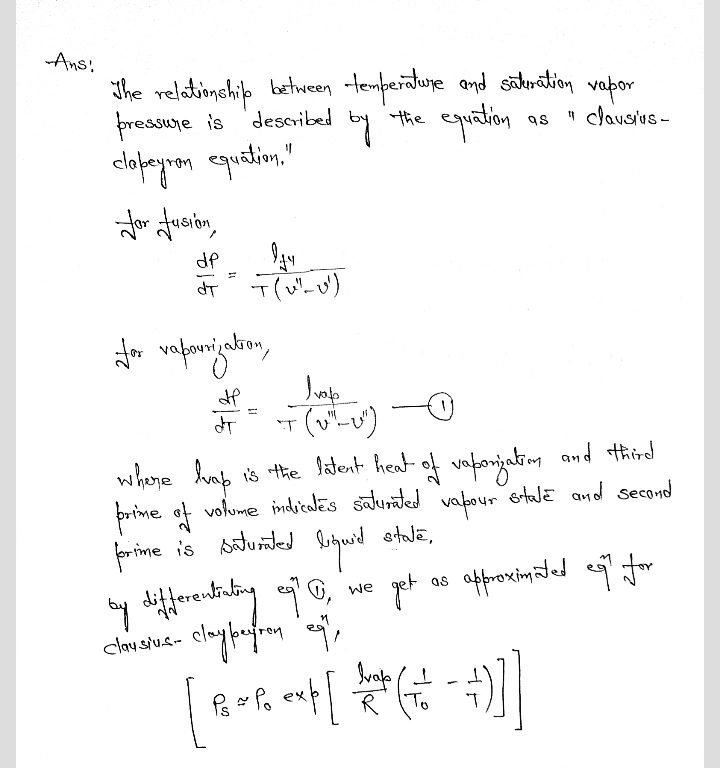 Ans:
The relationship between temperature and saturation vapor
pressure is described by the equation as " clausius-
clapeyron equation."
for fusion,
dP/dT = l_fu / T(v''-v')
for vapourization,
dP/dT = l_vap / T(v'''-v'') — ①
where lvap is the latent heat of vaporization and third
prime of volume indicates saturated vapour state and second
prime is saturated liquid state,
by differentiating eqⁿ ①, we get as approximated eqⁿ for
clausius- claypeyron eqⁿ,
[ P_s ≈ P_o exp[ l_vap/R (1/T_o - 1/T) ] ]